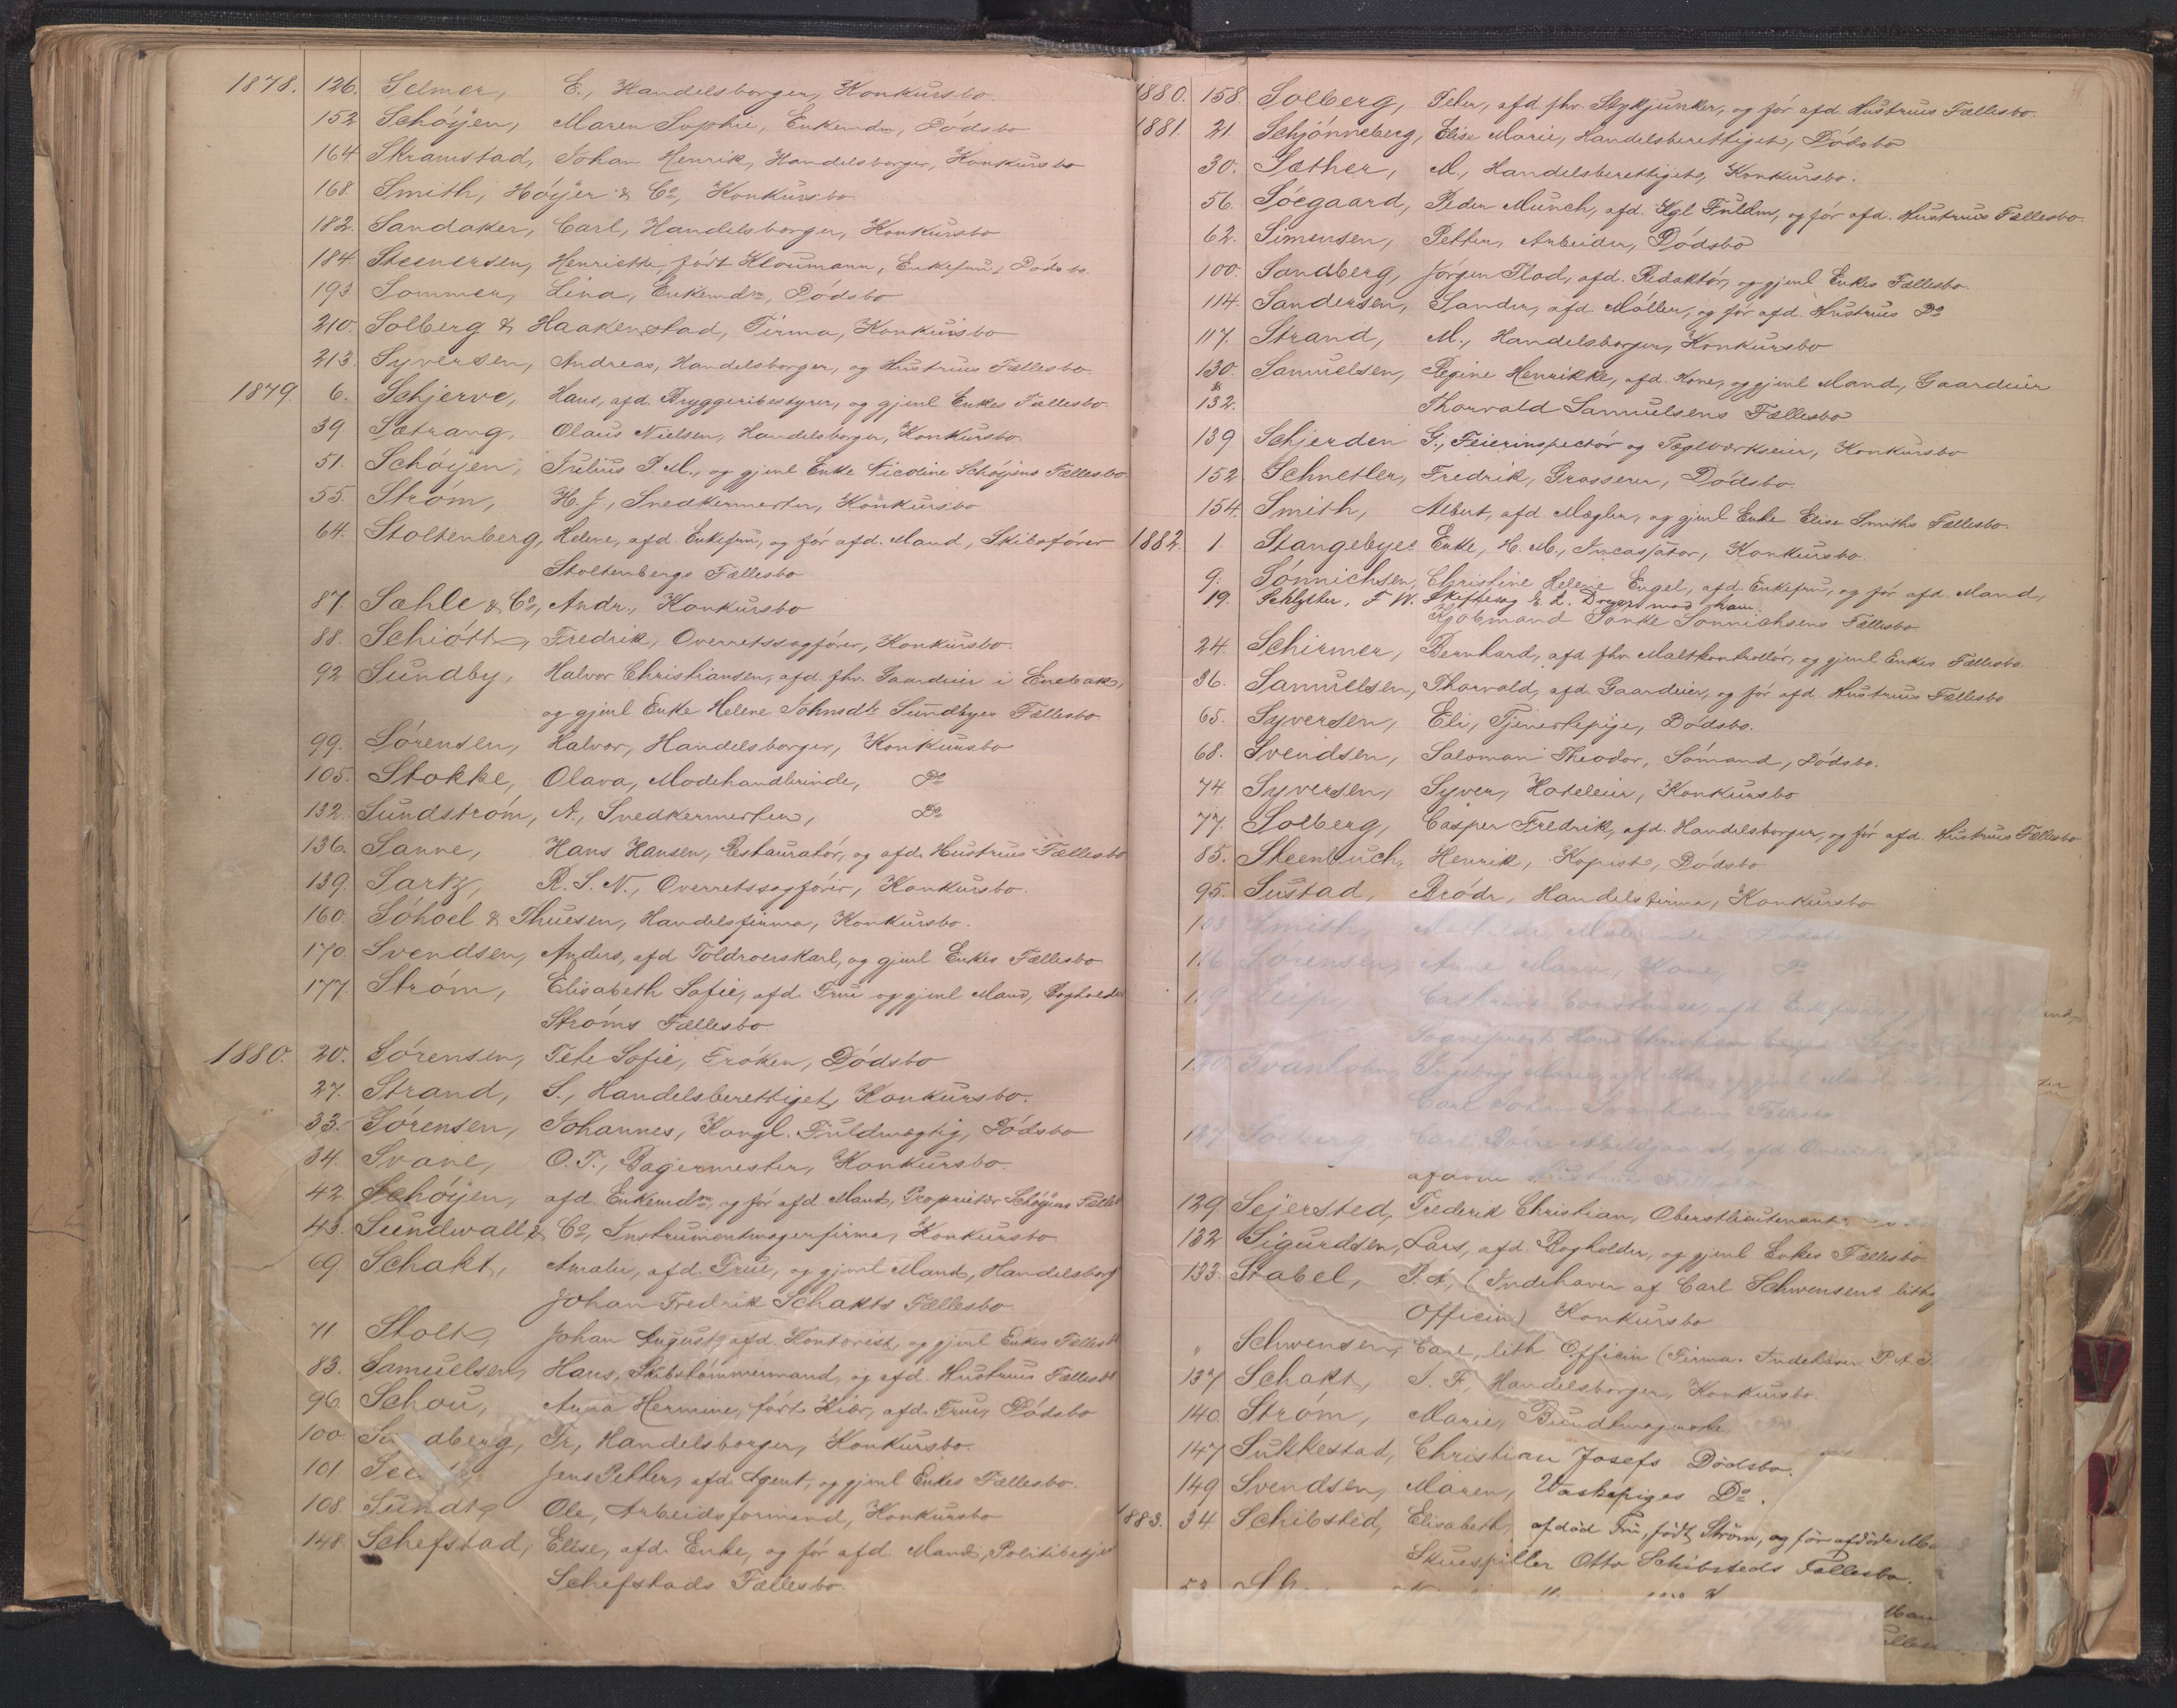 1878. 126. Selmer, E., Handelsborger, Konkursbo.
152 Schöyen, Maren Sophie, Enkemdm, Dödsbo
164 Skramstad, Johan Henrik, Handelsborger, Konkursbo
168. Smith, Höyer & Co, Konkursbo.
182. Sandaker, Carl, Handelsborger, Konkursbo
184. Steenersen, Henriette födt Kloumann, Enkefru, Dödsbo.
193 Sommer, Lina, Enkemdm, Dödsbo
210. Solberg & Haakenstad, Firma, Konkursbo
213. Syversen, Andreas, Handelsborger, og Hustrues Fællesbo.
1879 6. Schjerve, Hans, afd. Bryggeribestyrer, og gjenl Enkes Fællesbo.
39. Sætrang, Olaus Nielsen, Handelsborger, Konkursbo.
51. Schöyen, Julius P. M., og gjenl Enke Nicoline Schöyens Fællesbo.
55. Ström, H. J., Snedkermester, Konkursbo
64. Stoltenberg, Helene, afd. Enkefru, og för afd. Mand, Skibsförer
Stoltenbergs Fællesbo
87. Sæhle & Co, Andr., Konkursbo
88. Schiött, Fredrik, Overretssagförer, Konkursbo.
92 Sundby, Halvor Christiansen, afd. fhv. Gaardeier i Enebak,
og gjenl Enke Helene Johnsdtr Sundbyes Fællesbo.
99. Sörensen, Halvor, Handelsborger, Konkursbo
105. Stokke, Olava, Modehandlerinde, Do
132. Sundström, A., Snedkermester, Do
136. Sanne, Hans Hansen, Restauratör, og afd. Hustrues Fællesbo
139. Sartz, R. S. N., Overretssagförer, Konkursbo.
160. Söhoel & Thuesen, Handelsfirma, Konkursbo.
170. Svendsen, Anders, afd Toldroerskarl, og gjenl Enkes Fællesbo
177. Ström, Elisabeth Sofie, afd. Frue og gjenl Mand, Bogholder
Ströms Fællesbo
1880. 20. Sörensen, Sofie, Fröken, Dödsbo
27. Strand, S., Handelsberettiget, Konkursbo.
33. Sörensen, Johannes, Kongl. Fuldmægtig, Dödsbo
34. Svane, O. T., Bagermester, Konkursbo.
42 Schöyen, afd. Enkemdm, og för afd Mand, Proprietær Schöyens Fælles
43. Sundwall & Co, Instrumentmagerfirma, Konkursbo
69. Schakt, Amalie, afd. Frue, og gjenl Mand, Handelsborg
Johan Fredrik Schakts Fællesbo
71 Stolt, Johan August, afd. Kontorist, og gjenl Enkes Fællesb
83. Samuelsen, Hans, Skibstömmermand, og afd. Hustrues Fællesb
96. Schou, Anna Hermine, födt Kiær, afd. Frue, Dödsbo
100 dberg, Fr., Handelsborger, Konkursbo.
101. Jens Petter, afd. Agent, og gjenl Enkes Fællesbo.
108. Sundt, Ole, Arbeidsformand, Konkursbo
148. Schefstad, Elise, afd. Enke, og för afd. Mand, Politibetje
Schefstads Fællesbo.
1880. 158. Solberg, Peter, afd. fhv. Stykjunker, og för afd. Hustrues Fællesbo.
1881. 21. Schjönneberg, Elise Marie, Handelsberettiget, Dödsbo
30. Sæther, M., Handelsberettiget, Konkursbo.
56. Söegaard, Peder Munch, afd. Kgl Fuldm, og för afd. Hustrues Fællesbo.
62. Simensen, Petter, Arbeider, Dödsbo
100. Sandberg, Jörgen Flod, afd. Redaktör, og gjenl Enkes Fællesbo.
114. Sandersen, Sander, afd. Möller, og för afd. Hustrues Do
117. Strand, M., Handelsborger, Konkursbo
130. Samuelsen, Regine Henrikke, afd. Kone, og gjenl Mand, Gaardeier
& 132. Thorvald Samuelsens Fællesbo
139 Schjerden G., Feierinspectör og Teglværkseier, Konkursbo
152 Schnetler, Fredrik, Grosserer, Dödsbo.
154. Smith, Albert, afd Mægler, og gjenl Enke Elise Smiths Fællesbo.
1882. 1. Stangebyes Enke, H. M., Konkursbo
9. Sönnichsen, Christine Helene Engel, afd. Enkefru, og för afd. Mand,
19. Schlytter, F. W. Skiftesag E. L. mod ham.
Kjöbmand Sönnichsens Fællesbo
24. Schirmer, Bernhard, afd fhv. Maltkontrollör, og gjenl Enkes Fællesbo.
36. Samuelsen, Thorvald, afd. Gaardeier, og för afd. Hustrues Fællesbo
65. Syversen, Eli, Tjenestepige, Dödsbo.
68. Svendsen, Salomon Theodor, Sömand, Dödsbo.
74 Syversen, Syver, Hoteleier, Konkursbo
77. Solberg, Casper Fredrik, afd. Handelsborger, og för afd. Hustrues Fællesbo
85. Steenbuch, Henrik, Kopist, Dödsbo
95. Sustad, Brödr., Handelsfirma, Konkursbo
103 Smith, Mathilde, Dödsbo
116 Sörensen, Anne Marie, Kone, Do
119 Seip, Cathrine Constance, afd Enkefru, og
Sogneprest Hans Christian Seips
120 Svanholm, Ingeborg Marie, afd
Carl Johan Svanholms Fællesbo
127 Solberg, Carl afd.
afdöde Hustrues Fællesbo
129 Sejersted, Frederik Christian, Oberstlieutenant,
132 Sigurdsen, Lars, afd. Bogholder, og gjenl Enkes Fællesbo
133. Stabel, P. A., (Indehaver af Carl Schwensens lith
Officin) Konkursbo
" Schwensen, Carl, lith Officin (Firma. Indehaver P. A. S.
137 Schakt, J. F., Handelsborger, Konkursbo.
140 Ström, Marie,
147 Sukkestad, Christian Josefs Dödsbo.
149 Svendsen, Maren, Vaskepiges Do.
1883. 34 Schibsted, Elisabeth, afdöd Fru, födt Ström, og för afdöde Ma
Skuespiller Otto Schibsteds Fællesbo.
53